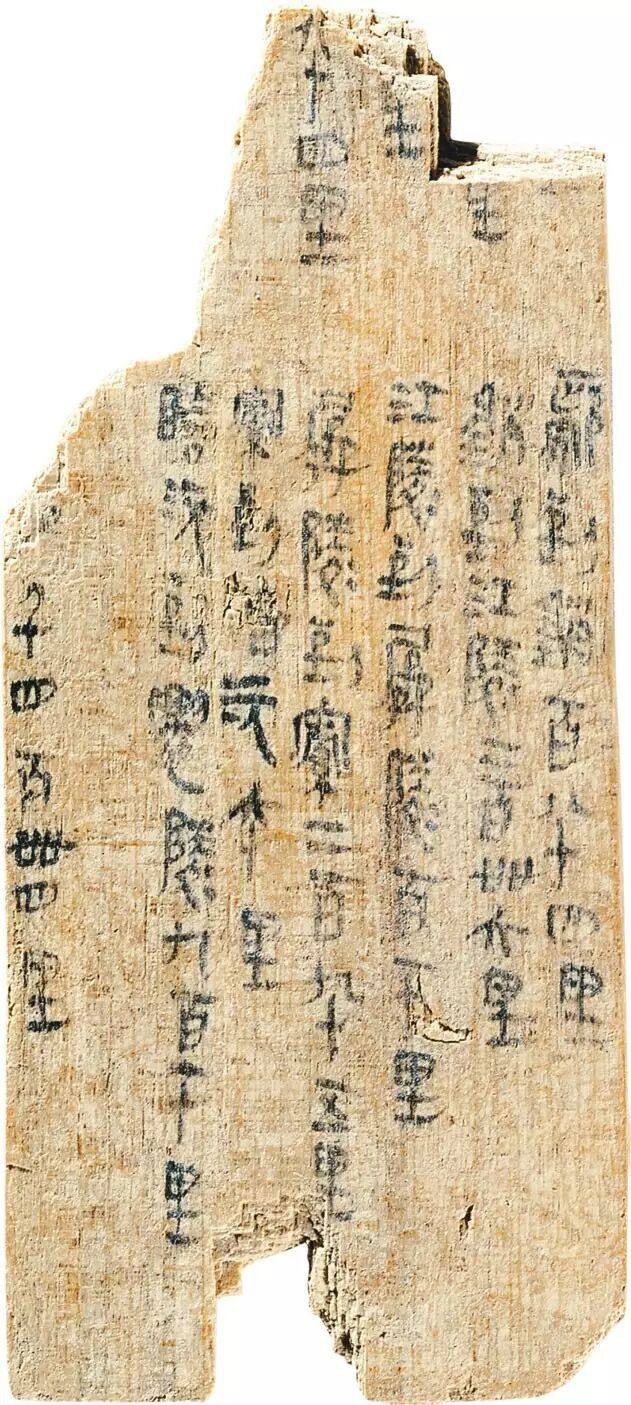 十四里
鄢到銷百八十四里
銷到江陵二百卌六里
江陵到孱陵百一十里
孱陵到索二百九十五里
索到臨沅六十里
臨沅到遷陵九百一十里
千四百卌四里